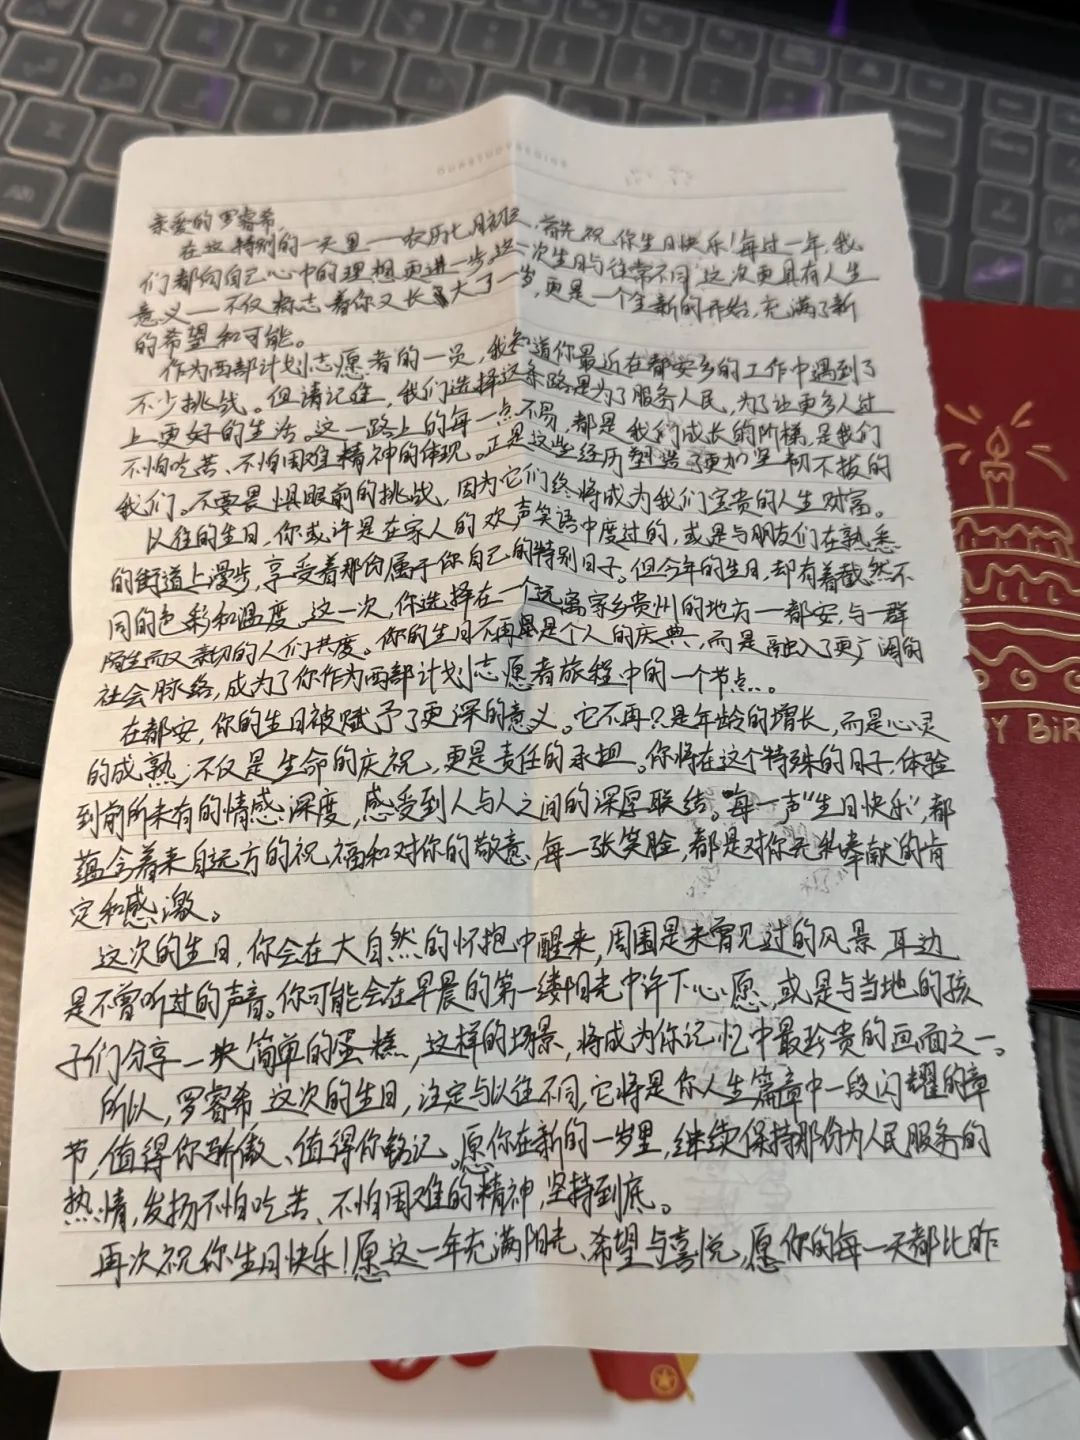 亲爱的罗睿希,
在这特别的一天里——农历七月初三,首先祝你生日快乐!每过一年,我
们都向自己心中的理想更进一步。这一次生日与往常不同,这次更具有人生
意义——不仅标志着你又长大了一岁,更是一个全新的开始,充满了新
的希望和可能。
作为西部计划志愿者的一员,我知道你最近在都安乡的工作中遇到了
不少挑战。但请记住,我们选择这条路是为了服务人民,为了让更多人过
上更好的生活。这一路上的每一点不易,都是我们成长的阶梯,是我们
不怕吃苦、不怕困难精神的体现。正是这些经历塑造了更加坚韧不拔的
我们。不要畏惧眼前的挑战,因为它们终将成为我们宝贵的人生财富。
以往的生日,你或许是在家人的欢声笑语中度过的,或是与朋友们在熟悉
的街道上漫步,享受着那份属于你自己的特别日子。但今年的生日,却有着截然不
同的色彩和温度。这一次,你选择在一个远离家乡贵州的地方——都安,与一群
陌生而又亲切的人们共度。你的生日不再是个人的庆典,而是融入了更广阔的
社会脉络,成为了你作为西部计划志愿者旅程中的一个节点。
在都安,你的生日被赋予了更深的意义。它不再只是年龄的增长,而是心灵
的成熟;不仅是生命的庆祝,更是责任的承担。你将在这个特殊的日子,体验
到前所未有的情感深度,感受到人与人之间的深厚联结。每一声“生日快乐”,都
蕴含着来自远方的祝福和对你的敬意,每一张笑脸,都是对你无私奉献的肯
定和感激。
这次的生日,你会在大自然的怀抱中醒来,周围是未曾见过的风景,耳边
是不曾听过的声音。你可能会在早晨的第一缕阳光中许下心愿,或是与当地的孩
子们分享一块简单的蛋糕,这样的场景,将成为你记忆中最珍贵的画面之一。
所以,罗睿希,这次的生日,注定与以往不同,它将是你人生篇章中一段闪耀的章
节,值得你骄傲、值得你铭记。愿你在新的一岁里,继续保持那份为人民服务的
热情,发扬不怕吃苦、不怕困难的精神,坚持到底。
再次祝你生日快乐!愿这一年充满阳光、希望与喜悦,愿你的每一天都比昨
PY BiR